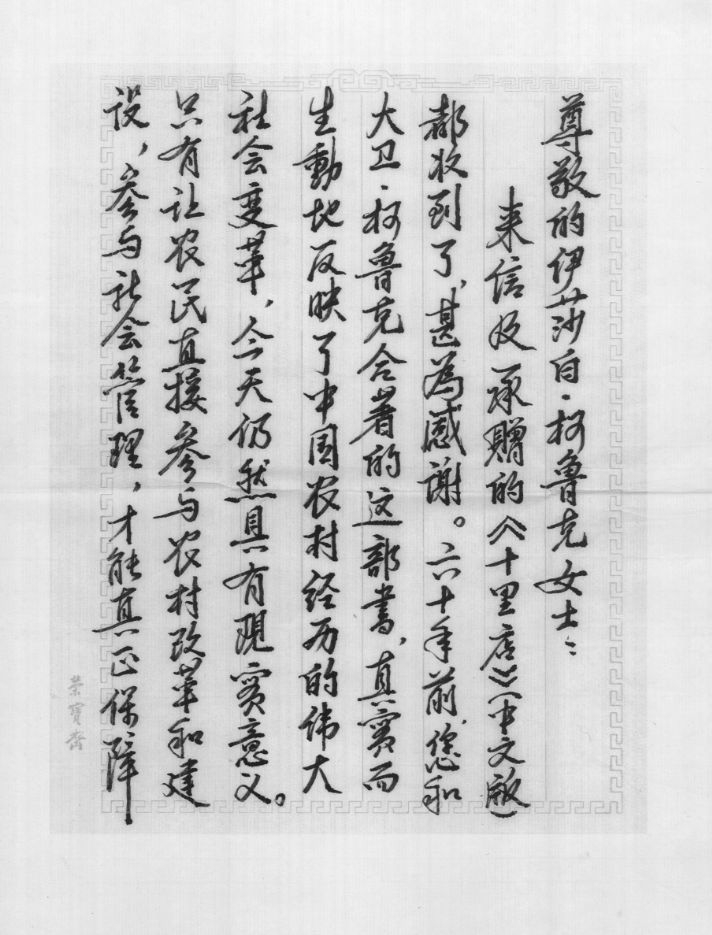 尊敬的伊莎白·柯鲁克女士：
来信及承赠的《十里店》(中文版)
都收到了，甚為感謝。六十年前，您和
大卫·柯鲁克合著的这部書，真实而
生動地反映了中国农村经历的伟大
社会变革，今天仍然具有現实意义。
只有让农民直接参与农村改革和建
设，参与社会管理，才能真正保障
荣寳斋